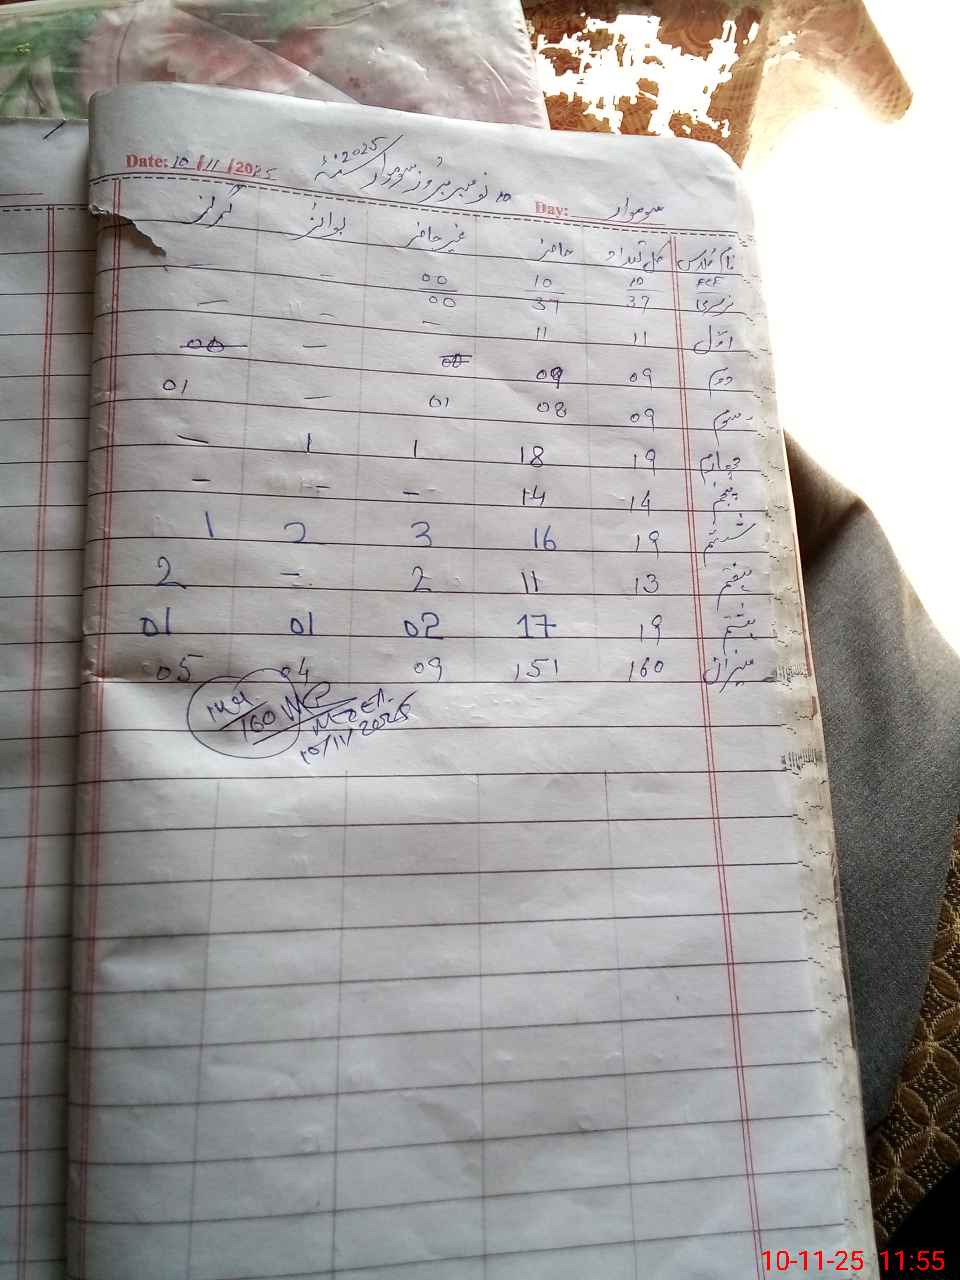 Date: 10/11/2025 10 نومبر بروز سوموار سنۂ 2025ء
Day: سوموار
نام کلاس کل تعداد حاضر غیر حاضر بوائز گرلز
ECE 10 10 00 - -
نرسری 37 37 00 - -
اوّل 11 11 - -
دوم 09 09 00 - 00
سوم 09 08 01 - 01
چہارم 19 18 1 1 -
پنجم 14 14 - - -
ششم 19 16 3 2 1
ہفتم 13 11 2 - 2
ہشتم 19 17 02 01 01
میزان 160 151 09 04 05
160
10/11/2025
10-11-25 11:55